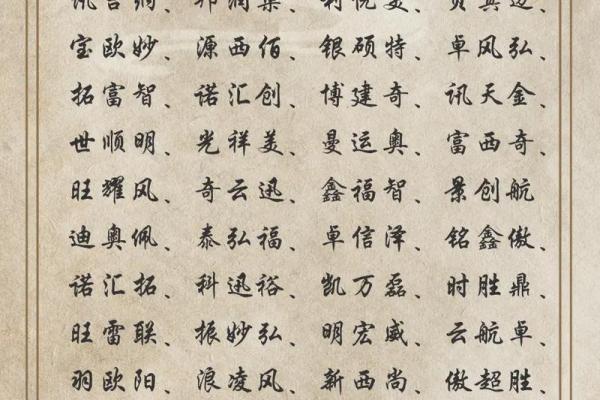 宝欧妙、源西佰、银硕特、卓风弘、
拓富智、诺汇创、博建奇、讯天金、
世顺明、光祥美、曼运奥、富西奇、
旺耀风、奇云迅、鑫福智、景创航
迪奥佩、泰弘福、卓信泽、铭鑫傲、
诺汇拓、科迅裕、凯万磊、时胜鼎、
旺雷联、振妙弘、明宏威、云航卓、
羽欧阳、浪凌风、新西尚、傲超胜、